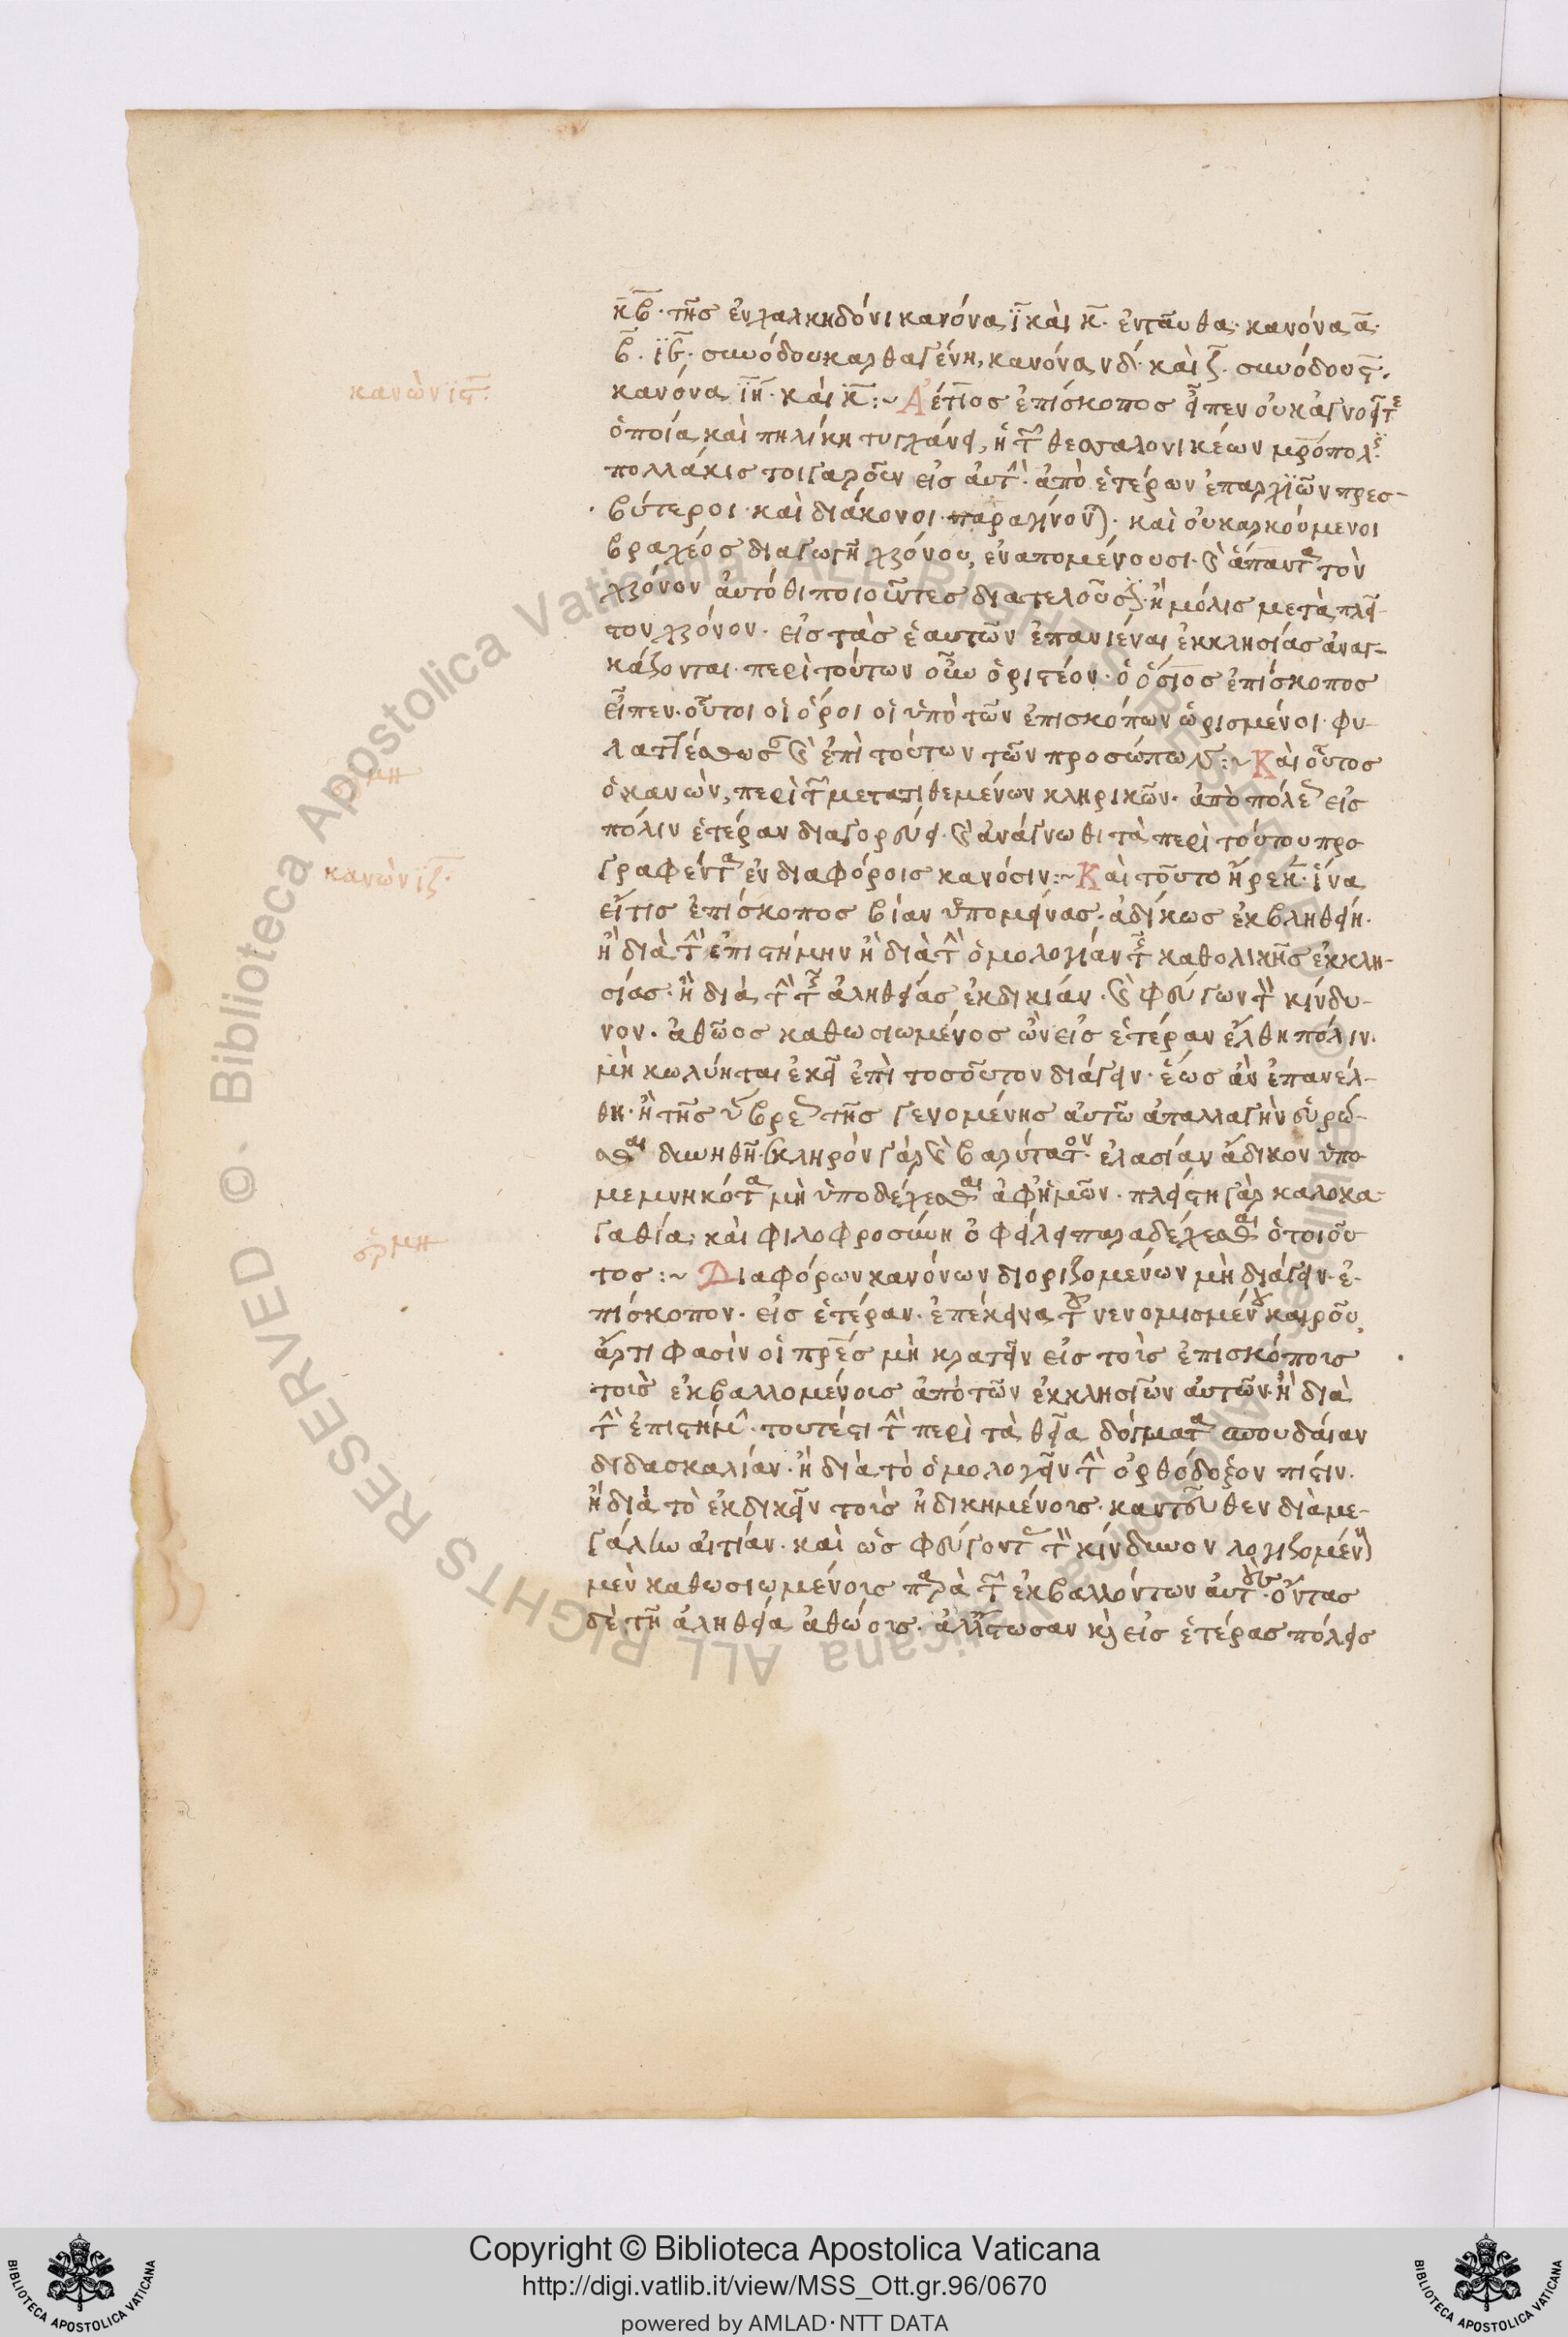 κ̅β̅· τῆς ἐν χαλκηδόνι κανόνα ϊ̅ καὶ κ̅· ἐνταῦθα κανόνα α̅·
β̅· ϊβ̅· συνόδου καρθαγένη, κανόνα νδ· καὶ ζ̅· συνόδου ϛ̅·
κανὼν ιϛ̅·
κανόνα ϊη̅· καὶ κ̅ :~ Ἀέτιος ἐπίσκοπος εἶπεν οὐκ ἀγνοεῖτε
ὁποία καὶ πηλίκη τυγχάνει, ἡ τῶν θεσσαλονικέων μρόπολις·
πολλάκις τοιγαροῦν εἰς αὐτὴν· ἀπὸ ἑτέρων ἐπαρχϊῶν πρεσ-
βύτεροι· καὶ διάκονοι παραγίνονται· καὶ οὐκ ἀρκούμενοι
βραχέος διαγωγῆ χρόνου, ἐναπομένουσι· καὶ ἅπαντα τὸν
χρόνον αὐτόθι ποιοῦντες διατελοῦσιν· ἢ μόλις μετὰ πλεῖ-
στον χρόνον· εἰς τὰς ἑαυτῶν ἐπανιέναι ἐκκλησίας ἀναγ-
κάζονται· περὶ τούτων οὖν ὁριστέον· ὁ ὅσιος ἐπίσκοπος
εἶπεν· οὗτοι οἱ ὅροι οἱ ὑπὸ τῶν ἐπισκόπων ὡρισμένοι· φυ-
λαττέσθωσαν καὶ ἐπὶ τούτων τῶν προσώπων :~ Καὶ οὗτος
ὁ κανὼν, περὶ τῶν μετατιθεμένων κληρικῶν· ἀπὸ πόλεως εἰς
πόλιν ἑτέραν διαγορεύει· καὶ ἀνάγνωθι τὰ περὶ τούτου προ
κανὼν ιζ̅·
γραφέντα ἐν διαφόροις κανόσιν :~ Καὶ τοῦτο ἤρεσεν· ἵνα
εἴτις ἐπίσκοπος βίαν ὑπομείνας· ἀδίκως ἐκβληθείη·
ἢ διὰ τὴν ἐπιστήμην ἢ διὰ τὴν ὁμολογίαν τῆς καθολικῆς ἐκκλη-
σίας· ἢ διὰ τὴν τῆς ἀληθείας ἐκδικίαν· καὶ φεύγων τὸν κίνδυ-
νον· ἀθῶος καθωσιωμένος ὢν εἰς ἑτέραν ἔλθη πόλιν·
μὴ κωλύηται ἐκεῖ ἐπὶ τοσοῦτον διάγειν· ἕως ἂν ἐπανέλ-
θη· ἢ τῆς ὕβρεως τῆς γενομένης αὐτῶ ἀπαλλαγὴν εὑρέ-
σθαι δυνηθῆ· σκληρὸν γὰρ καὶ βαρύτατον· ἐλασίαν ἄδικον ὑπο
μεμνηκότα μὴ ὑποδέχεσθαι ἀφ' ἡμῶν· πλείστη γὰρ καλοκα-
γαθία καὶ φιλοφροσύνη ὀφείλει παραδέχεσθαι ὁ τοιοῦ
τος :~ Διαφόρων κανόνων διοριζομένων μὴ διάγειν· ἐ-
πίσκοπον· εἰς ἑτέραν· ἐπέκεινα τοῦ νενομισμένου καιροῦ,
ἄρτι φασὶν οἱ πρες μὴ κρατεῖν εἰς τοῖς ἐπισκόποις
τοῖς ἐκβαλλομένοις ἀπὸ τῶν ἐκκλησϊῶν αὐτῶν· ἢ διὰ
τὴν ἐπιστήμην· τουτέστι τὴν περὶ τὰ θεῖα δόγματα σπουδαίαν
διδασκαλίαν· ἢ διὰ τὸ ὁμολογεῖν τὴν ὀρθόδοξον πίστιν·
ἢ διὰ τὸ ἐκδικεῖν τοῖς ἠδικημένοις· καντεῦθεν διὰ με-
γάλην αἰτίαν· καὶ ὡς φεύγοντες τὸν κίνδυνον λογιζομένους
μὲν καθωσιωμένοις παρὰ τῶν ἐκβαλλόντων αὐτοὺς· ὄντας
δὲ τῆ ἀληθεία ἀθώοις· ἀλλ' ἔστωσαν καὶ εἰς ἑτέρας πόλεις
Copyright © Biblioteca Apostolica Vaticana
http://digi.vatlib.it/view/MSS_Ott.gr.96/0670
powered by AMLAD·NTT DATA